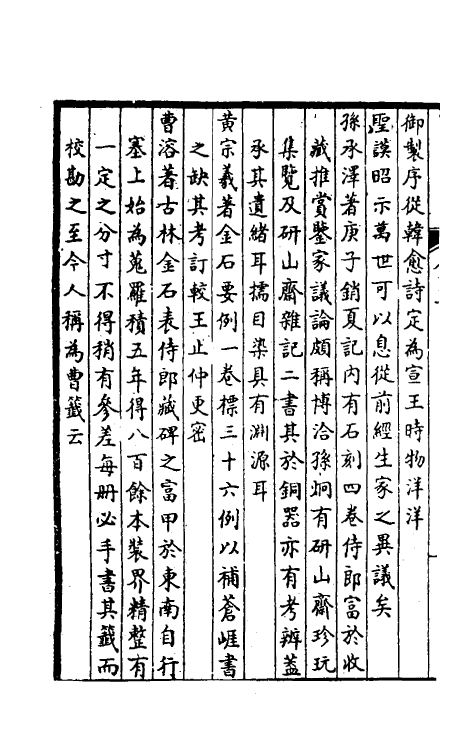 御製序從韓愈詩定為宣王時物洋洋
聖謨昭示萬世可以息從前經生家之異議矣
孫承澤著庚子銷夏記內有石刻四卷侍郎富於收
藏推賞鑒家議論頗稱博洽孫炯有研山齋珍玩
集覽及研山齋雜記二書其於銅器亦有考辨蓋
承其遺緒耳擩目染具有淵源耳
黃宗羲著金石要例一卷標三十六例以補蒼崖書
之缺其考訂較王止仲更密
曹溶著古林金石表侍郎藏碑之富甲於東南自行
塞上始為蒐羅積五年得八百餘本裝界精整有
一定之分寸不得稍有參差每册必手書其籤而
校勘之至今人稱為曹籤云